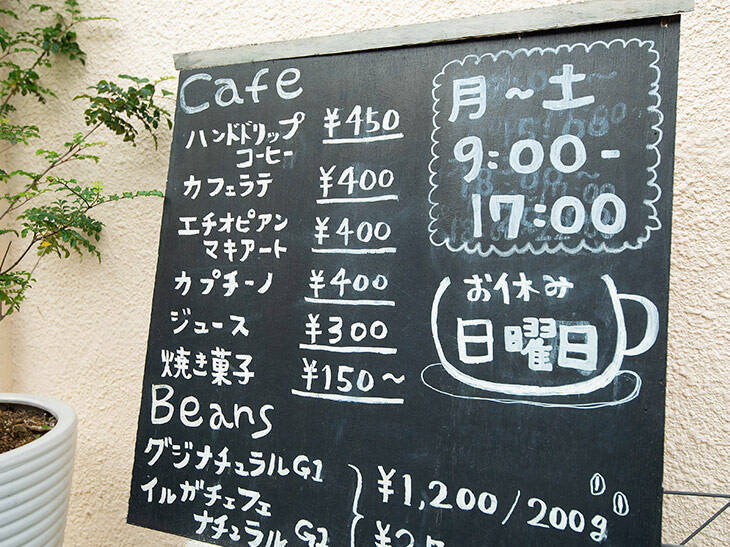 Cafe
ハンドドリップ
コーヒー ¥450
カフェラテ ¥400
エチオピアン
マキアート ¥400
カプチーノ ¥400
ジュース ¥300
焼き菓子 ¥150~
Beans
グジナチュラルG1
イルガチェフェ
ナチュラルG1
¥1,200/200g
月~土
9:00-
17:00
お休み
日曜日